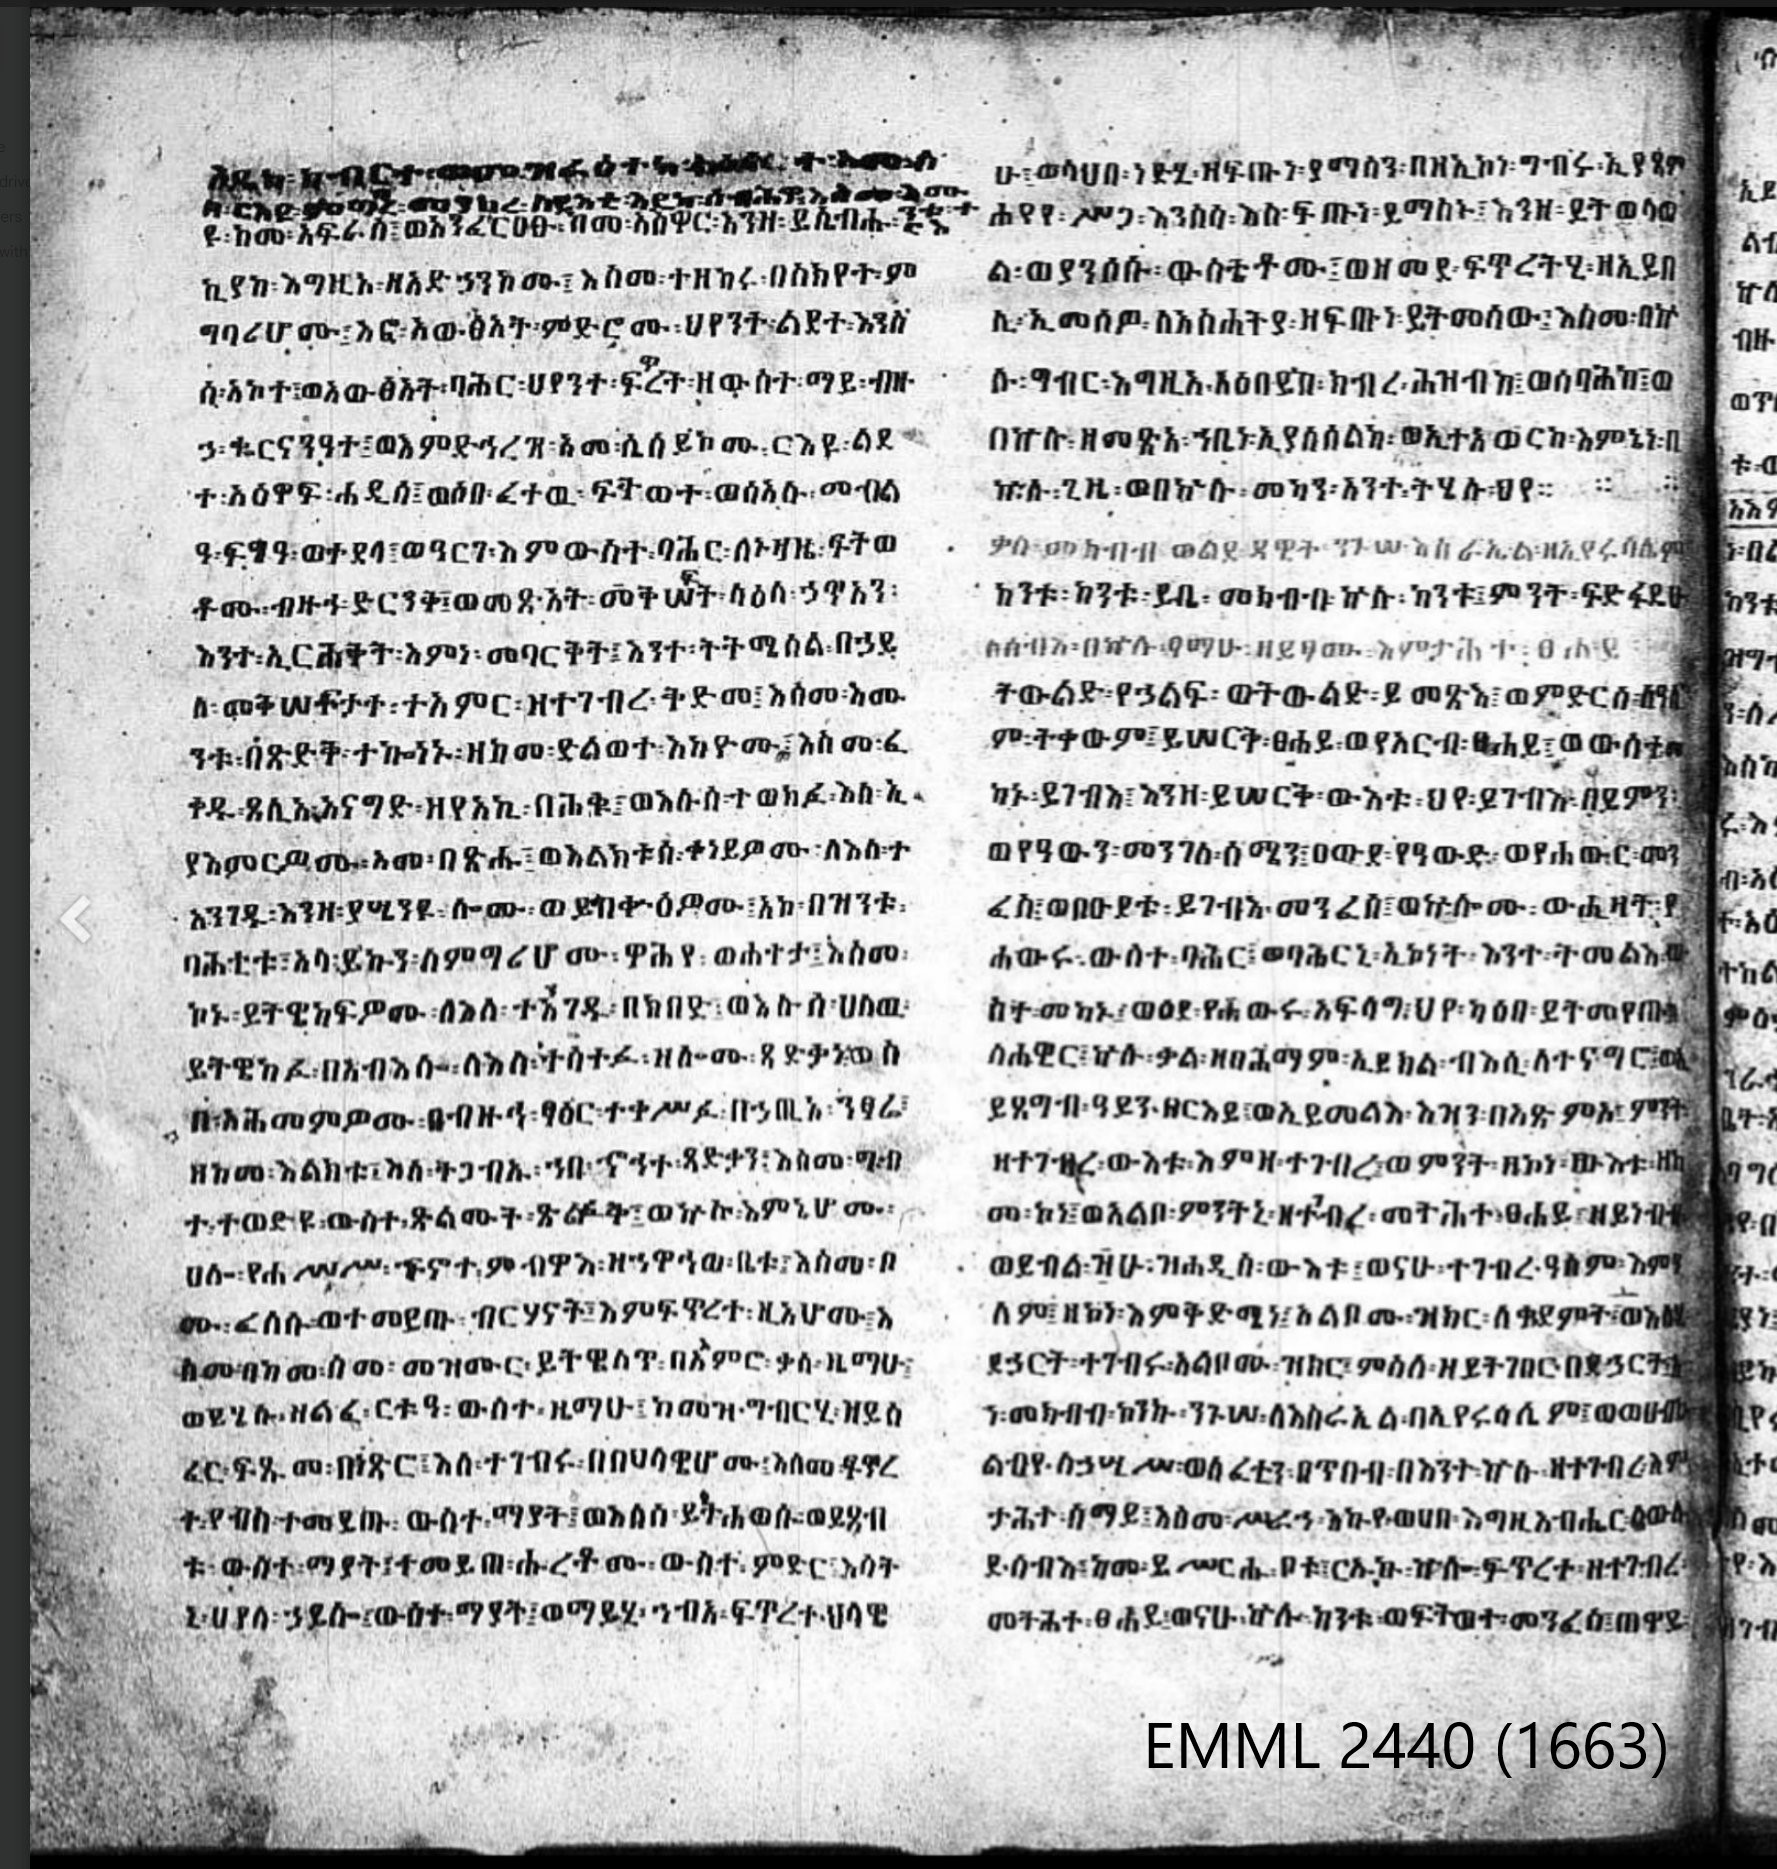 ኪያከ፡እግዚአ፡ዘአድኃንኮሙ፤እስመ፡ተዘከሩ፡በስክየት፡ም
ግባሪሆሙ፤እፎ፡አውፅአት፡ምድሮሙ፡ህየንተ፡ልደተ፡እንስ
ሳ፡አኮተ፤ወአውፅአት፡ባሕር፡ህየንተ፡ፍጥረት፡ዘውስተ፡ማይ፡ብዙ
ኃ፡ቈርናንዓተ፤ወእምድኅረዝ፡አመ፡ሲሰይኮሙ፡ርእዩ፡ልደ
ተ፡አዕዋፍ፡ሐዲስ፤ወሶበ፡ፈተዉ፡ፍትወተ፡ወሰአሉ፡መብል
ዓ፡ፍግዓ፡ወተደላ፤ወዓርገ፡እምውስተ፡ባሕር፡ለኑዛዜ፡ፍትወ
ቶሙ፡ብዙኅ፡ድርንቅ፤ወመጽአት፡መቅሠፍት፡ላዕለ፡ኃጥአን፡
እንተ፡ኢርሕቀት፡እምነ፡መባርቅት፤እንተ፡ትትሜሰል፡በኃይ
ለ፡መቅሠፍታት፡ተአምር፡ዘተገብረ፡ትድመ፤እስመ፡አሙ
ንቱ፡በጽድቅ፡ተኰነኑ፡ዘከመ፡ድልወተ፡እከዮሙ፤እስመ፡ፈ
ቀዱ፡ጸሊአ፡እናግድ፡ዘየአኪ፡በሕቁ፤ወእሉሰ፡ተወክፈ፡እለ፡ኢ
ያእምርዎሙ፡አመ፡በጽሑ፤ወእልክቱሰ፡ቀነይዎሙ፡ለእለ፡ተ
እንገዱ፡እንዘ፡ያሤንዩ፡ሎሙ፡ወይበቍዕዎሙ፤አከ፡በዝንቱ፡
ባሕቲቱ፤አላ፡ይኩን፡ለምግባሪሆሙ፡ዋሕየ፡ወሐተታ፤እስመ፡
ኮኑ፡ይትዌከፍዎሙ፡ለእለ፡ተእንገዱ፡በክበድ፡ወእሉሰ፡ሀለዉ፡
ይትዌከፈ፡በአብእሶ፡ለእለ፡ተሳተፈ፡ዘሎሙ፡ጻድቃነ፡ወሰ
በ፡አሕመምዎሙ፡በብዙኅ፡ፃዕር፡ተቀሥፈ፡በኃጢአ፡ንፃሬ፤
ዘከመ፡እልክቱ፤እለ፡ትጋብኡ፡ኀበ፡ኆኅተ፡ጻድቃን፤እስመ፡ግብ
ተ፡ተወድዩ፡ውስተ፡ጽልሙት፡ጽፉቅት፤ወኵሉ፡እምኔሆሙ፡
ሀሎ፡የሐሥሥ፡ፍኖተ፡ምብዋእ፡ዘኀዋኅወ፡ቤቱ፤እስመ፡በ
ሙ፡ፈለሱ፡ወተመይጡ፡ብርሃናት፤እምፍጥረተ፡ዚአሆሙ፤እ
ስመ፡በከመ፡ስመ፡መዝሙር፡ይትዌለጥ፡በአምሮ፡ቃለ፡ዜማሁ፤
ወይሄሉ፡ዘልፈ፡ርቱዓ፡ውስተ፡ዜማሁ፤ከመዝ፡ግብርሂ፡ዘይሰ
ፈር፡ፍጹመ፡በነጽር፤እለ፡ተገብሩ፡በበህላዌሆሙ፤እስመ፡ፍጥረ
ተ፡የብስ፡ተመይጡ፡ውስተ፡ማያት፤ወእለሰ፡ይትሐወሱ፡ወይጸብ
ቱ፡ውስተ፡ማያት፤ተመይጠ፡ሑረቶሙ፡ውስተ፡ምድር፤እሳት
ኒ፡ሀየለ፡ኃይሎ፤ውስተ፡ማያት፤ወማይሂ፡ኀብአ፡ፍጥረተ፡ህላዌ
ሁ፤ወሳህበ፡ነደሂ፡ዘፍጡነ፡ያማስን፡በዘኢኮነ፡ግብሩ፡ኢያጸም
ሐየየ፡ሥጋ፡እንስሳ፡እለ፡ፍጡነ፡ይማስኑ፤እንዘ፡ይትወሳወ
ል፡ወያንሶሱ፡ውስቴቶሙ፤ወዘመደ፡ፍጥረትሂ፡ዘኢይበ
ሊ፡ኢመሰዎ፡ለአስሐትያ፡ዘፍጡነ፡ይትመሰው፤እስመ፡በኵ
ሉ፡ግብር፡እግዚአ፡አዕበይከ፡ክብረ፡ሕዝብከ፤ወሰባሕከ፤ወ
በኵሉ፡ዘመጽአ፡ኀቤነ፡ኢያሰሰልከ፡ወኢተአወርከ፡እምኔነ፡በ
ኵሉ፡ጊዜ፡ወበኵሉ፡መካን፡አንተ፡ትሄሉ፡ህየ።
ቃለ፡መክብብ፡ወልደ፡ዳዊት፡ንጉሠ፡እስራኤል፡ዘኢየሩሳሌም
ከንቱ፡ከንቱ፡ይቤ፡መክብብ፡ኵሉ፡ከንቱ፤ምንት፡ፍድፋዴሁ
ለሰብእ፡በኵሉ፡ፃማሁ፡ዘይፃሙ፡እምታሕተ፡ፀሐይ
ትውልድ፡የኃልፍ፡ወትውልድ፡ይመጽእ፤ወምድርሰ፡ለዓለ
ም፡ትቀውም፤ይሠርቅ፡ፀሐይ፡ወየአርብ፡ፀሐይ፤ወውስተ፡መ
ካኑ፡ይገብእ፤እንዘ፡ይሠርቅ፡ውእቱ፡ህየ፡ይገብእ፡በይምን፡
ወየዓውን፡መንገለ፡ሰሜን፤ዐውደ፡የዓውድ፡ወየሐውር፡መን
ፈስ፤ወበዑደቱ፡ይገብእ፡መንፈስ፤ወኵሎሙ፡ውሒዛት፡የ
ሐውሩ፡ውስተ፡ባሕር፤ወባሕርኒ፡ኢኮነት፡እንተ፡ትመልእ፡ው
ስተ፡መካኑ፤ወዕደ፡የሐውሩ፡አፍላግ፡ህየ፡ካዕበ፡ይትመየጡ
ለሐዊር፤ኵሉ፡ቃል፡ዘበሕማም፡ኢይክል፡ብእሲ፡ለተናግሮ፤ወኢ
ይጸግብ፡ዓይን፡ዘርእይ፤ወኢይመልእ፡እዝን፡በአጽምእ፤ምንት
ዘተገብረ፡ውእቱ፡እምዘ፡ተገብረ፡ወምንት፡ዘኮነ፡ውእቱ፡ዘከ
መ፡ኮነ፤ወአልቦ፡ምንትኒ፡ዘተገብረ፡መትሕተ፡ፀሐይ፡ዘይነብብ
ወይብል፡ዝሁ፡ዝሐዲስ፡ውእቱ፤ወናሁ፡ተገብረ፡ዓለም፡እምዓ
ለም፤ዘኮነ፡እምቅድሜነ፤አልቦሙ፡ዝክር፡ለቀደምት፡ወእለ
ደኃርት፡ተገብሩ፡አልቦሙ፡ዝክር፤ምስለ፡ዘይትገበር፡በደኃርት
ነ፡መክብብ፡ኮንኩ፡ንጉሠ፡ለእስራኤል፡በኢየሩሳሌም፤ወወሀብኩ
ልብየ፡ለኃሢሥ፡ወለፈቲን፡በጥበብ፡በእንተ፡ኵሉ፡ዘተገብረ፡እም
ታሕተ፡ሰማይ፤እስመ፡ሥራኀ፡እኩየ፡ወሀበ፡እግዚአብሔር፡ለውሉ
ደ፡ሰብእ፡ከመ፡ይሥርሑ፡ቦቱ፤ርኢኩ፡ኵሎ፡ፍጥረተ፡ዘተገብረ፡
መትሕተ፡ፀሐይ፡ወናሁ፡ኵሉ፡ከንቱ፡ወፍትወተ፡መንፈስ፤ጠዋይ
EMML 2440 (1663)